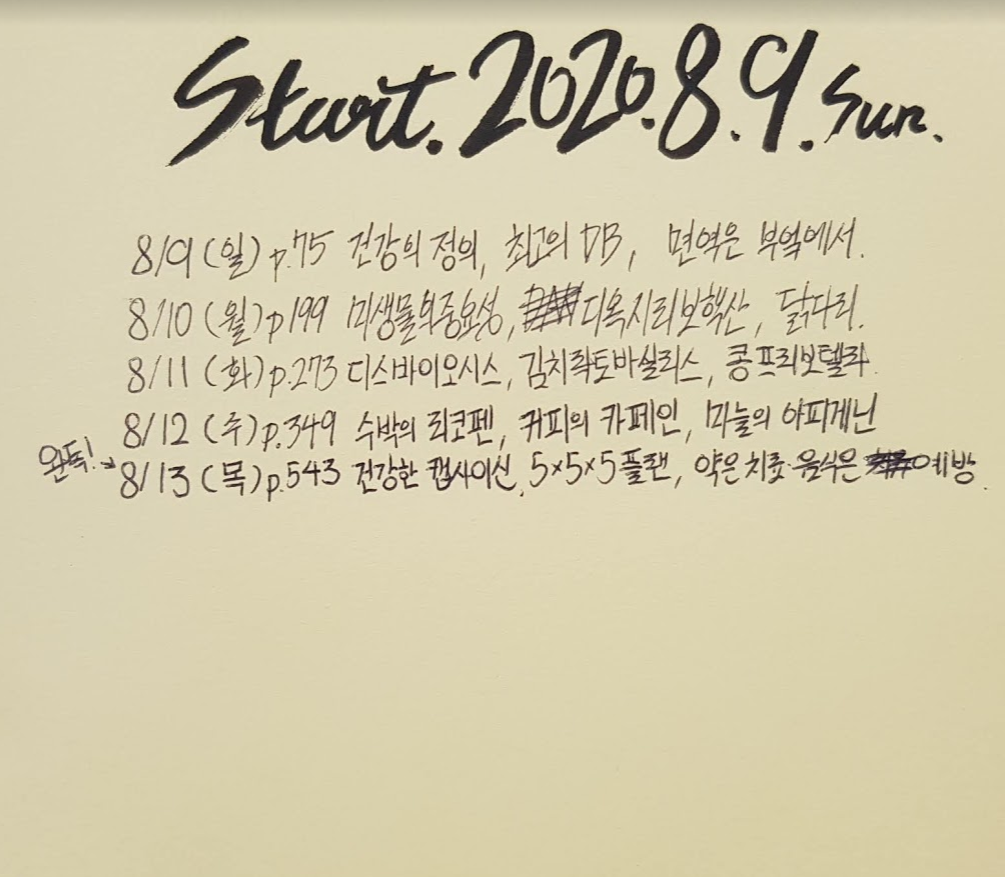 Start. 2020. 8. 9. Sun.
8/9 (일) p.75 건강의 정의, 최고의 DB, 면역은 부엌에서.
8/10 (월) p199 미생물의중요성, 디옥시리보핵산, 닭다리.
8/11 (화) p.273 디스바이오시스, 김치락토바실리스, 콩프리보텔라.
8/12 (수) p.349 수박의 리코펜, 커피의 카페인, 마늘의 아피게닌
완독!→ 8/13 (목) p.543 건강한 캡사이신, 5×5×5 플랜, 약은 치료 음식은 예방.